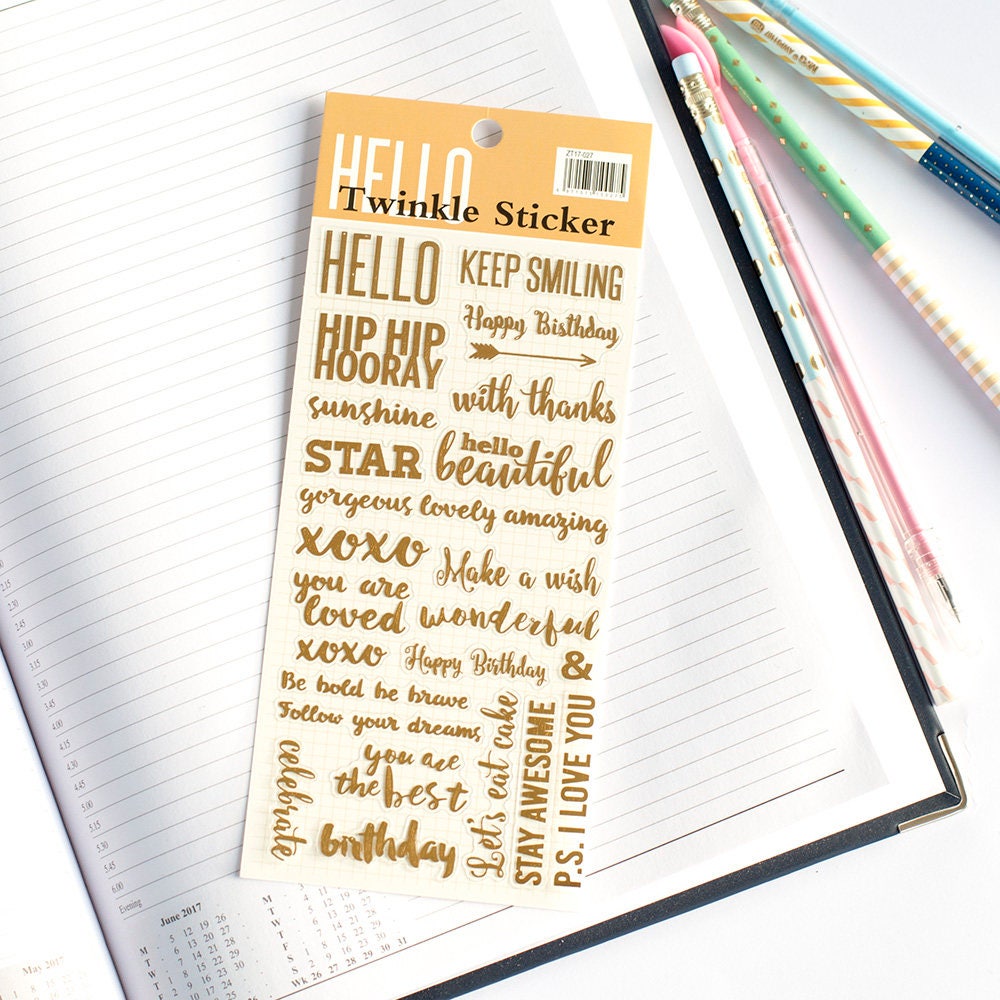 HELLO
Twinkle Sticker
ZT17-027
HELLO
KEEP SMILING
HIP HIP
HOORAY
Happy Birthday
with thanks
sunshine
STAR
hello
beautiful
gorgeous lovely amazing
xoxo
Make a wish
you are
loved
wonderful
xoxo
Happy Birthday
&
Be bold be brave
Follow your dreams
you are
the best
celebrate
birthday
Let's eat cake
STAY AWESOME
P.S. I LOVE YOU
2.15
2.30
2.45
3.00
3.15
3.30
3.45
4.00
4.15
4.30
4.45
5.00
5.15
5.30
5.45
6.00
Evening
June 2017
M - 5 12 19 26
T - 6 13 20 27
W - 7 14 21 28
T 1 8 15 22 29
F 2 9 16 23 30
S 3 10 17 24
S 4 11 18 25
Wk 26 27 28 29 30 31
May 2017